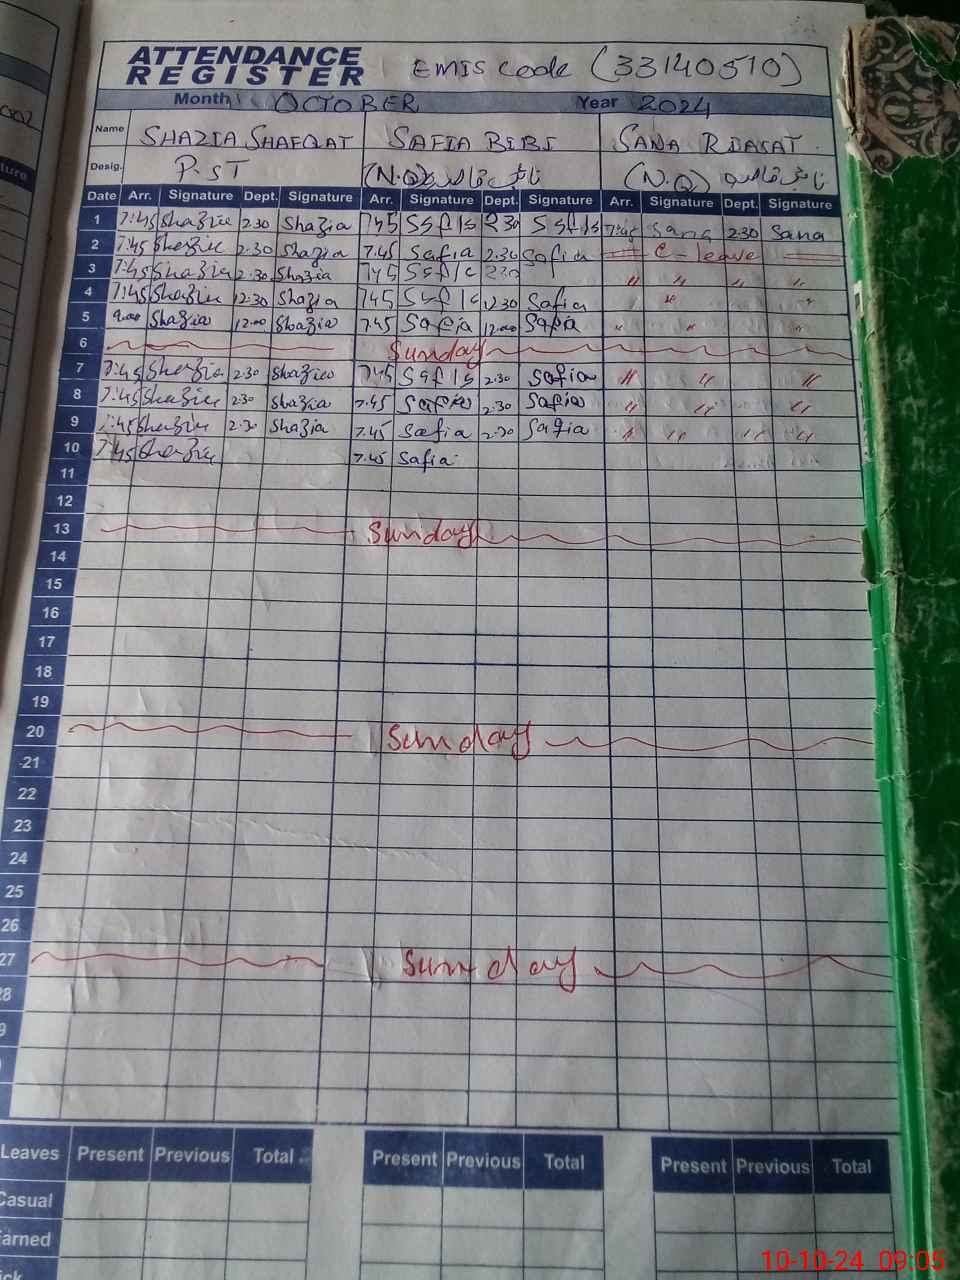 ATTENDANCE
REGISTER EMIS Code (33140510)
Month OCTOBER Year 2024
Name SHAZIA SHAFQAT SAFIA BIBI SANA RIASAT
Desig. P.ST (N.Q) نائب قاصد (N.Q) نائب قاصد
Date Arr. Signature Dept. Signature Arr. Signature Dept. Signature Arr. Signature Dept. Signature
1 7:45 Shazia 2:30 Shazia 7:45 2:30 7:45 Sana 2:30 Sana
2 7:45 Shazia 2:30 Shazia 7.45 Safia 2:30 Safia C-leave
3 7:45 Shazia 2:30 Shazia 7:45 2:30 " " " "
4 7:45 Shazia 12:30 Shazia 7:45 12:30 Safia " "
5 9:00 Shazia 12:00 Shazia 7.45 Safia 12:00 Safia " " "
6 Sunday
7 7:45 Shazia 2:30 Shazia 7:45 2:30 Safia " " "
8 7:45 Shazia 2:30 Shazia 7.45 Safia 2:30 Safia " " "
9 7:45 Shazia 2:30 Shazia 7.45 Safia 2:30 Safia " " " "
10 7:45 Shazia 7.45 Safia
11
12
13 Sunday
14
15
16
17
18
19
20 Sunday
21
22
23
24
25
26
27 Sunday
28
9
Leaves Present Previous Total Present Previous Total Present Previous Total
Casual
arned
ick
10-10-24 09:05